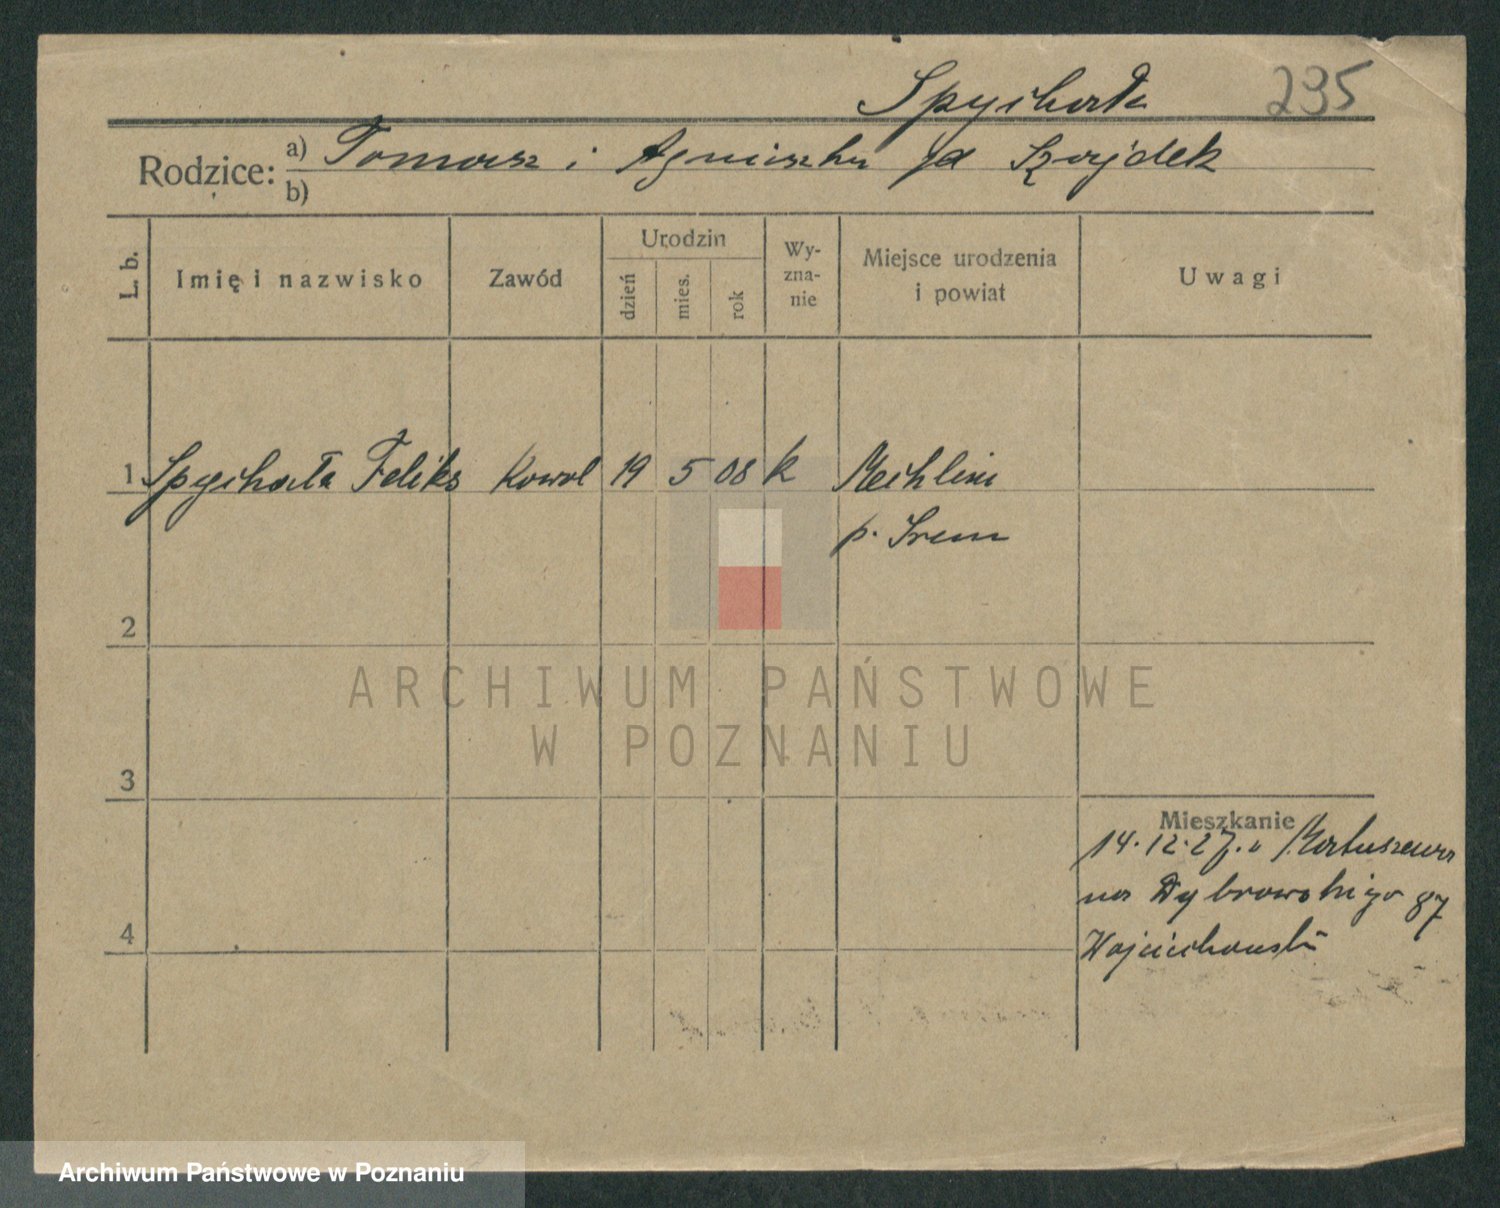 Spychała 295
Rodzice: a) Tomasz i Agnieszka zd Szajdek
b)
L. b. Imię i nazwisko Zawód Urodzin dzień mies. rok Wy-zna-nie Miejsce urodzenia i powiat Uwagi
1 Spychała Feliks Kowal 19 5 08 k Mechlin
p. Śrem
2
3
Mieszkanie
14.12.27. z Matuszewa
na Dąbrowskiego 87
4 Wojciechowski
ARCHIWUM PAŃSTWOWE
W POZNANIU
Archiwum Państwowe w Poznaniu